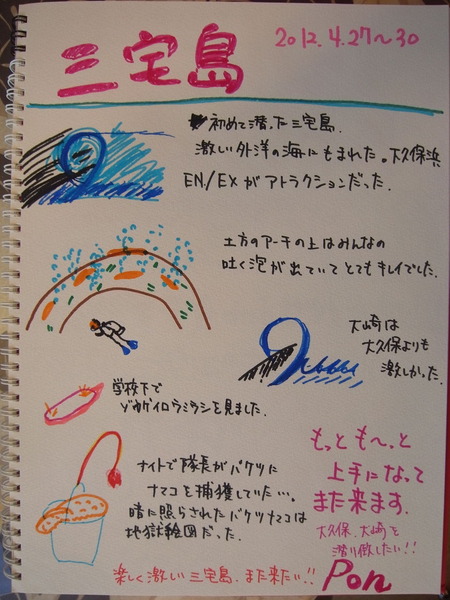 三宅島
2012.4.27〜30
初めて潜った三宅島.
激しい外洋の海にもまれた。大久保浜
EN/EXがアトラクションだった.
土方のアーチの上はみんなの
吐く泡が出ていてとてもキレイでした.
大崎は
大久保よりも
激しかった.
学校下で
ゾウゲイロウミウシを見ました.
ナイトで隊長がバケツに
ナマコを捕獲していた….
暗に照らされたバケツナマコは
地獄絵図だった.
もっともーっと
上手になって
また来ます.
大久保、大崎を
潜り倒したい!!
楽しく激しい三宅島.また来たい!!
Pon